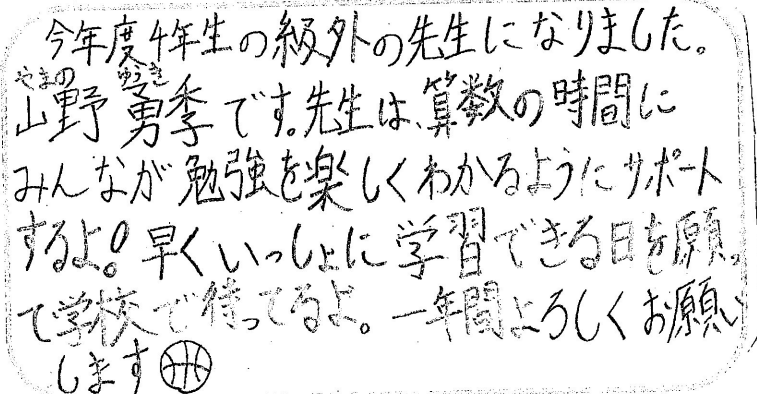 今年度4年生の級外の先生になりました。
やまの ゆうき
山野 勇季です。先生は、算数の時間に
みんなが勉強を楽しくわかるようにサポート
するよ！早くいっしょに学習できる日を願っ
て学校で待ってるよ。一年間よろしくお願い
します